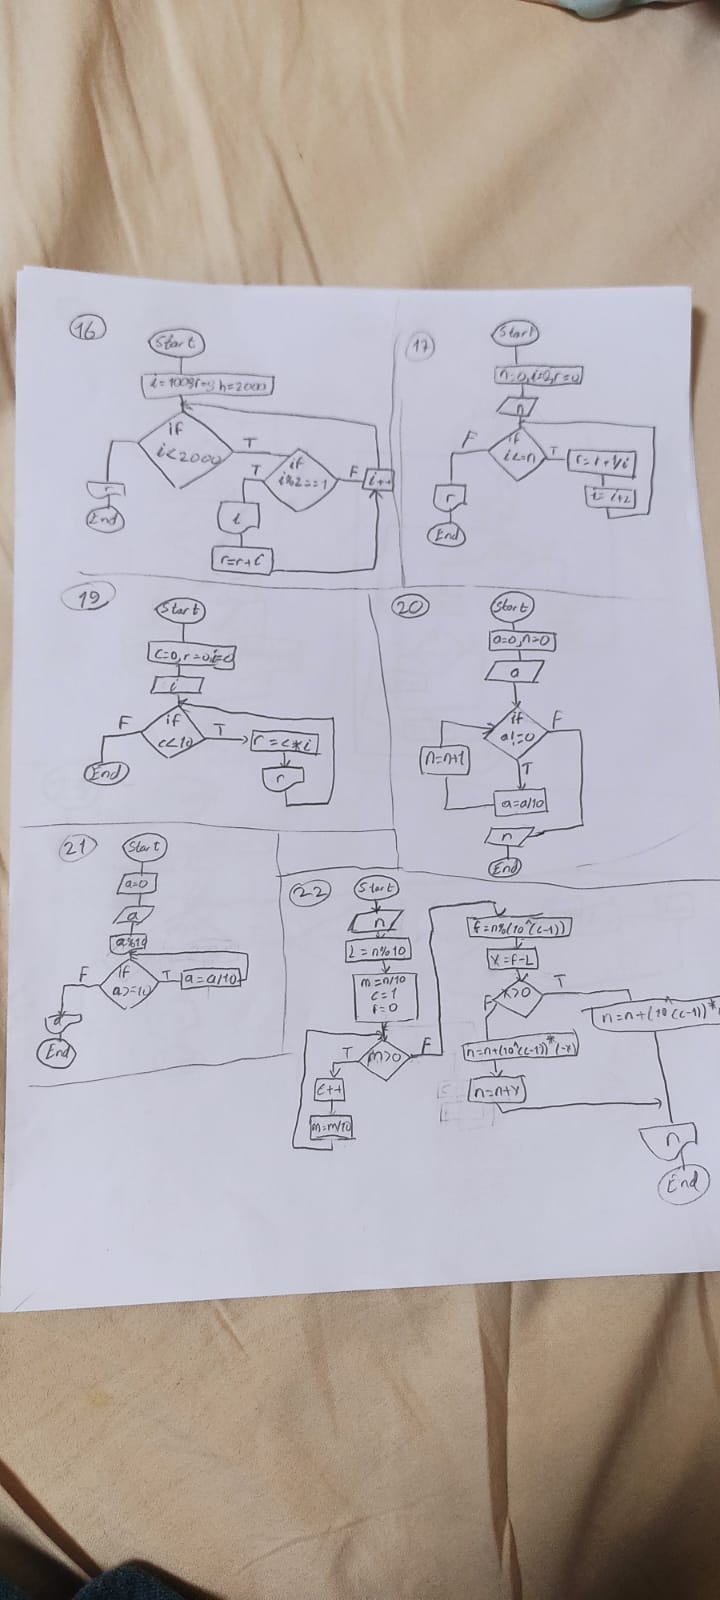 16
Start
if
i<2000
T
if
i%2==1
T
F
i++
i
r=r+i
r
End
17
Start
n=0,i=2,r=0
n
if
i<=n
F
T
r=r+1/i
i=i+2
r
End
19
Start
c=0,r=0,i=0
i
if
c<10
F
T
r=c*i
r
End
20
Start
a=0,n=0
a
if
a!=0
F
T
n=n+1
a=a/10
n
End
21
Start
a=0
a
a%10
if
a>=10
F
T
a=a/10
a
End
22
Start
n
L=n%10
m=n/10
c=1
f=0
m>0
T
F
c++
m=m/10
f=n%(10^(c-1))
x=f-L
x>0
F
T
n=n+(10^(c-1))*
n=n+(10^(c-1))*(-x)
n
End